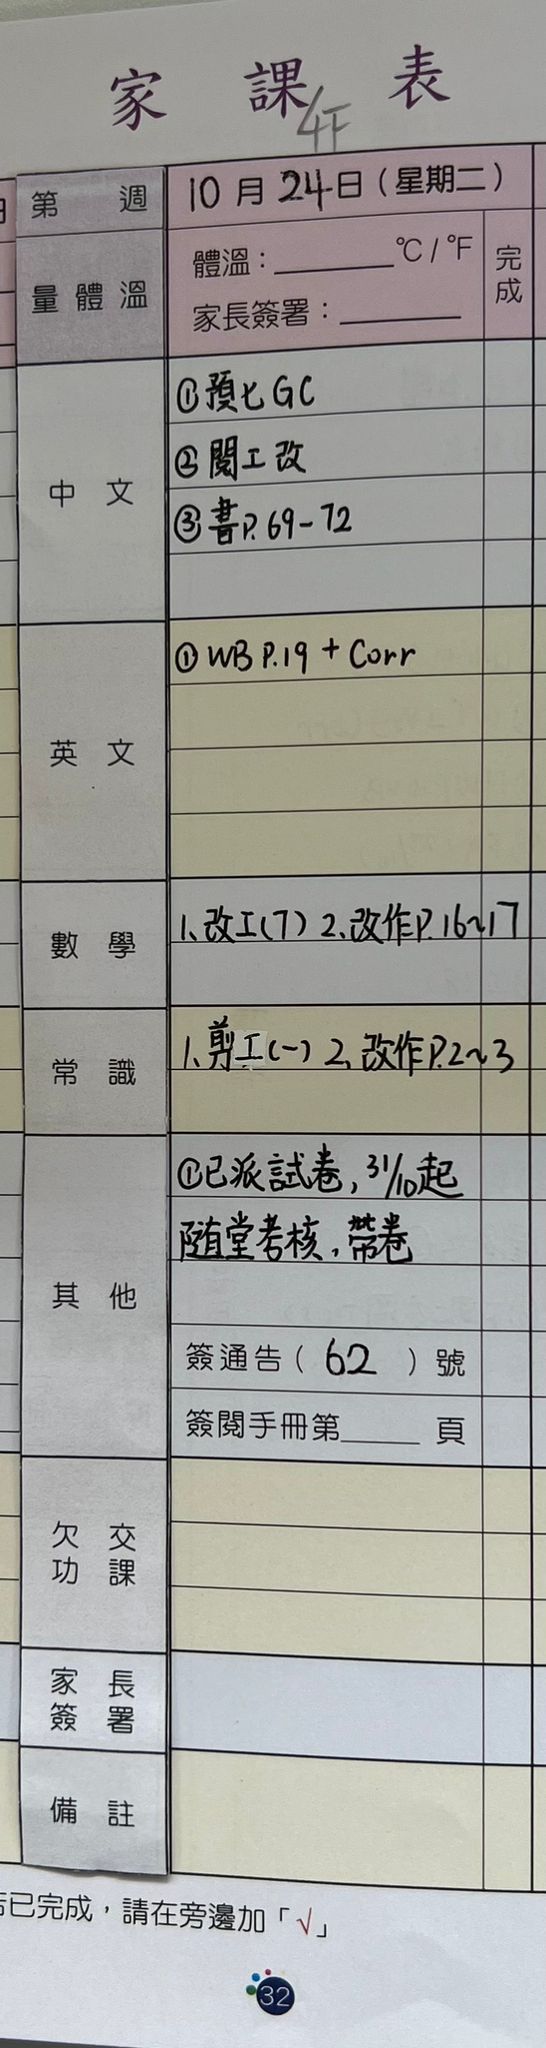 家課表
4F
第 週
10月24日(星期二)
量體溫
體溫：______°C/°F
完成
家長簽署：______
中文
①預七GC
②閱工改
③書P.69-72
英文
①WB P.19 + Corr
數學
1、改工(7) 2、改作P.16~17
常識
1、剪工(一) 2、改作P.2~3
其他
①已派試卷，31/10起
隨堂考核，帶卷
簽通告(62)號
簽閱手冊第____頁
欠交功課
家長簽署
備註
已完成，請在旁邊加「√」
32